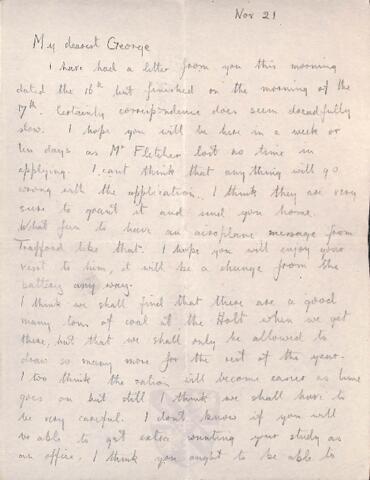 Nov 21
My dearest George
I have had a letter from you this morning
dated the 16th but finished on the morning of the
17th. Certainly correspondence does seem dreadfully
slow. I hope you will be here in a week or
ten days as Mr Fletcher lost no time in
applying. I can't think that anything will go
wrong with the application. I think they are very
sure to grant it and send you home.
What fun to have an aeroplane message from
Trafford like that. I hope you will enjoy your
visit to him, it will be a change from the
battery any way.
I think we shall find that there are a good
many tons of coal at the Holt when we get
there, but that we shall only be allowed to
draw so many more for the rest of the year.
I too think the ration will become easier as time
goes on but still I think we shall have to
be very careful. I don't know if you will
be able to get extra wanting your study as
an office. I think you ought to be able to